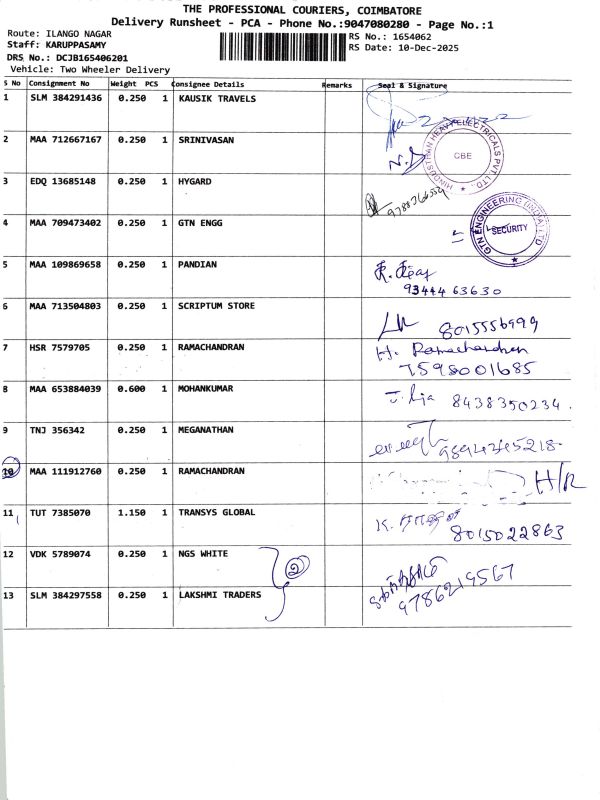 THE PROFESSIONAL COURIERS, COIMBATORE
Delivery Runsheet - PCA - Phone No.:9047080280 - Page No.:1
Route: ILANGO NAGAR
Staff: KARUPPASAMY
DRS No.: DCJB165406201
Vehicle: Two Wheeler Delivery
RS No.: 1654062
RS Date: 10-Dec-2025
S No Consignment No Weight PCS Consignee Details Remarks Seal & Signature
1 SLM 384291436 0.250 1 KAUSIK TRAVELS
2 MAA 712667167 0.250 1 SRINIVASAN
HINDUSTHAN HEAVY ELECTRICALS PVT. LTD.,
CBE
3 EDQ 13685148 0.250 1 HYGARD
4 MAA 709473402 0.250 1 GTN ENGG
GTN ENGINEERING (INDIA) LTD
SECURITY
5 MAA 109869658 0.250 1 PANDIAN
9344463630
6 MAA 713504803 0.250 1 SCRIPTUM STORE
8015556999
7 HSR 7579705 0.250 1 RAMACHANDRAN
H. Ramachandran
7598001685
8 MAA 653884039 0.600 1 MOHANKUMAR
8438350234.
9 TNJ 356342 0.250 1 MEGANATHAN
10 MAA 111912760 0.250 1 RAMACHANDRAN
H/R
11 TUT 7385070 1.150 1 TRANSYS GLOBAL
8015022863
12 VDK 5789074 0.250 1 NGS WHITE
2
13 SLM 384297558 0.250 1 LAKSHMI TRADERS
9786219567